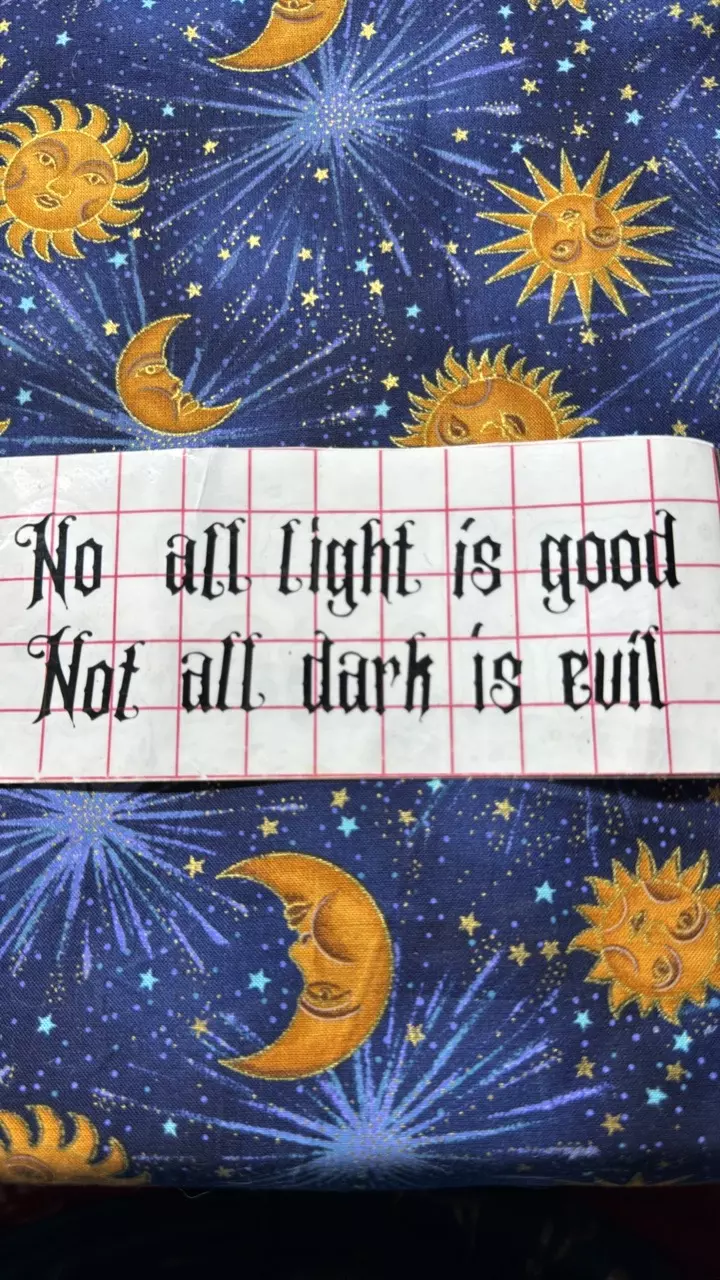 No all light is good
Not all dark is evil